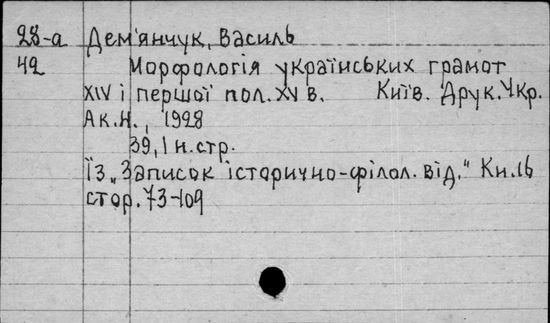 28-а Дем'янчук, Василь
42 Морфологія українських грамот
XIV і першої пол. XV в. Київ. Друк. Укр.
Ак. Н., 1928
39, 1 н. стр.
Їз „Записок історично-філол. від." Кн. 16
стор. 73-109